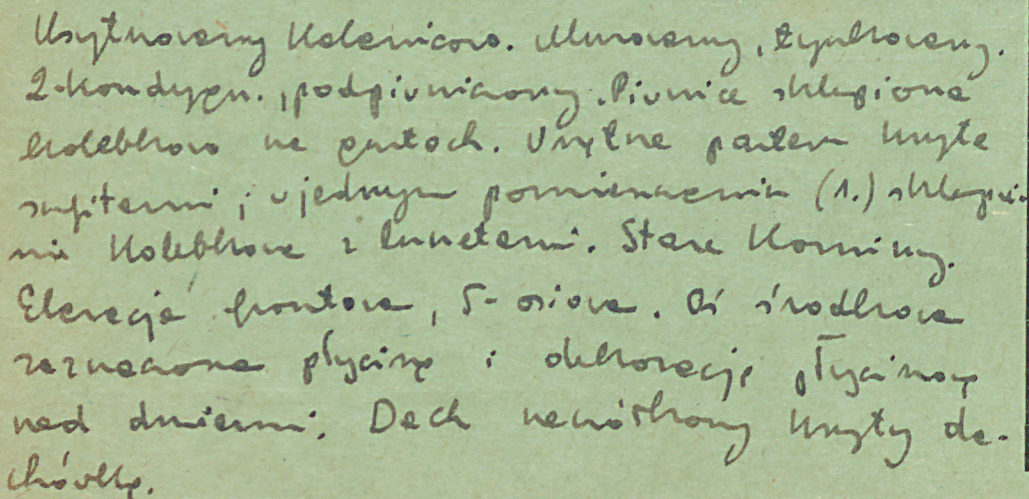 Usytuowany kalenicowo. Murowany, tynkowany.
2-kondygn., podpiwniczony. Piwnice sklepione
kolebkowo na gurtach. Wnętrza parteru kryte
sufitami; w jednym pomieszczeniu (1.) sklepie-
nie kolebkowe z lunetami. Stare kominy.
Elewacja frontowa, 5-osiowa. Oś środkowa
zaznaczona płyciną i dekoracją płycinową
nad drzwiami. Dach naczółkowy kryty da-
chówką.